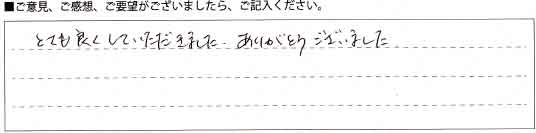 ■ご意見、ご感想、ご要望がございましたら、ご記入ください。
とても良くしていただきました。ありがとうございました